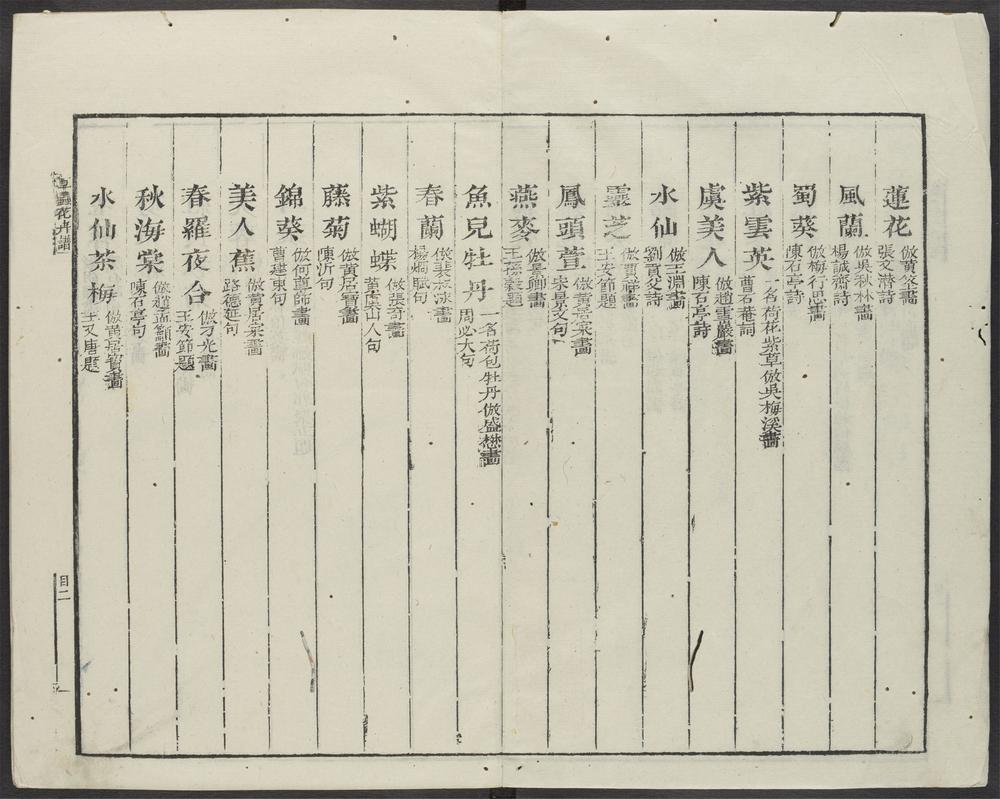 蓮花 倣黃筌畫 張文潛詩
風蘭 倣吳秋林畫 楊誠齋詩
蜀葵 倣梅行思畫 陳石亭詩
紫雲英 一名荷花紫草倣吳梅溪畫 曹石菴詞
虞美人 倣趙雪巖畫 陳石亭詩
水仙 倣王淵畫 劉貢父詩
靈芝 倣賈祥畫 王安節題
鳳頭萱 倣黃居寀畫 宋景文句
燕麥 倣畫 王孫穀題
魚兒牡丹 一名荷包牡丹倣盛懋畫 周必大句
春蘭 倣裴叔泳畫 楊炯賦句
紫蝴蝶 倣張奇畫 黃虞山人句
藤菊 倣黃居寶畫 陳沂句
錦葵 倣何尊師畫 曹建東句
美人蕉 倣黃居寀畫 路德延句
春羅夜合 倣刁光畫 王安節題
秋海棠 倣趙孟籲畫 陳石亭句
水仙茶梅 倣黃居寶畫 王又唐題
草蟲花卉譜
目二